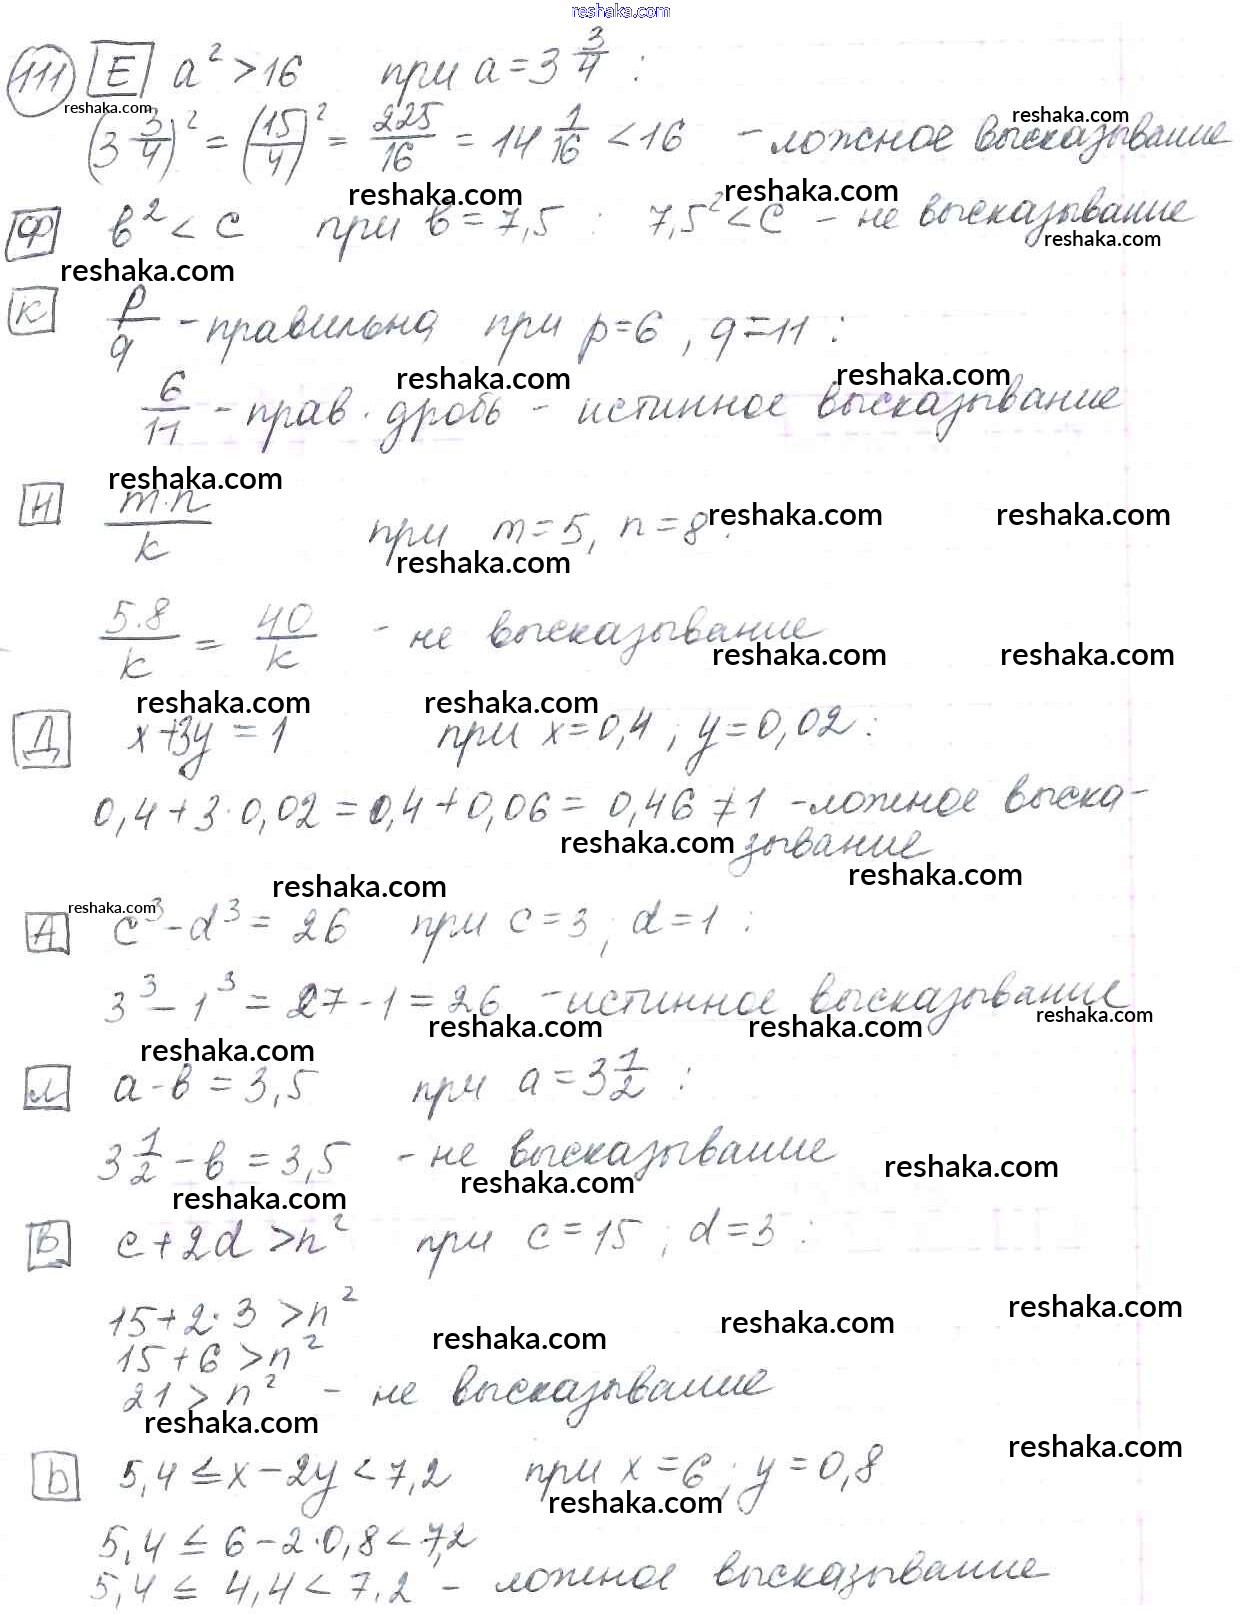 reshaka.com
111 Е a² > 16 при a = 3 3/4 :
reshaka.com
(3 3/4)² = (15/4)² = 225/16 = 14 1/16 < 16 - ложное высказывание
reshaka.com
reshaka.com reshaka.com
Ф b² < c при b = 7,5 : 7,5² < c - не высказывание
reshaka.com reshaka.com
К p/q - правильна при p = 6, q = 11 :
reshaka.com reshaka.com
6/11 - прав. дробь - истинное высказывание
reshaka.com
Н m·n/k при m = 5, n = 8 :
reshaka.com reshaka.com
reshaka.com
5·8/k = 40/k - не высказывание
reshaka.com reshaka.com
reshaka.com reshaka.com
Д x + 3y = 1 при x = 0,4 ; y = 0,02 :
0,4 + 3·0,02 = 0,4 + 0,06 = 0,46 ≠ 1 - ложное выска-
зывание
reshaka.com reshaka.com
reshaka.com
reshaka.com
А c³ - d³ = 26 при c = 3 ; d = 1 :
3³ - 1³ = 27 - 1 = 26 - истинное высказывание
reshaka.com reshaka.com reshaka.com
reshaka.com
Л a - b = 3,5 при a = 3 1/2 :
3 1/2 - b = 3,5 - не высказывание
reshaka.com reshaka.com reshaka.com
Б c + 2d > n² при c = 15 ; d = 3 :
15 + 2·3 > n²
reshaka.com reshaka.com reshaka.com
15 + 6 > n²
21 > n² - не высказывание
reshaka.com reshaka.com
Ь 5,4 ≤ x - 2y < 7,2 при x = 6 ; y = 0,8
reshaka.com
5,4 ≤ 6 - 2·0,8 < 7,2
5,4 ≤ 4,4 < 7,2 - ложное высказывание